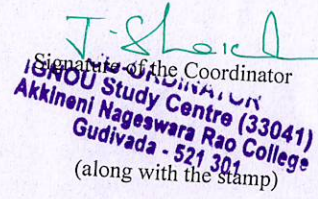 Signature of the Coordinator
CO-ORDINATOR
IGNOU Study Centre (33041)
Akkineni Nageswara Rao College
Gudivada - 521 301
(along with the stamp)